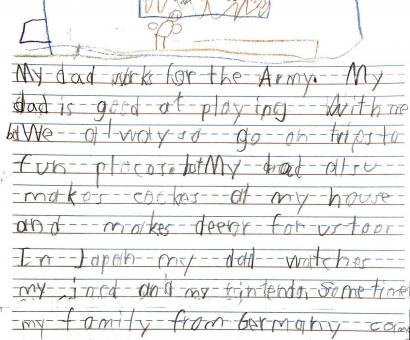 My dad works for the Army. My
dad is good at playing with me
We always go on trips to
fun places. but My dad also
makes at my house
and makes for us too
In Japan my dad watches
my and my nintendo Sometimes
my family from Germany